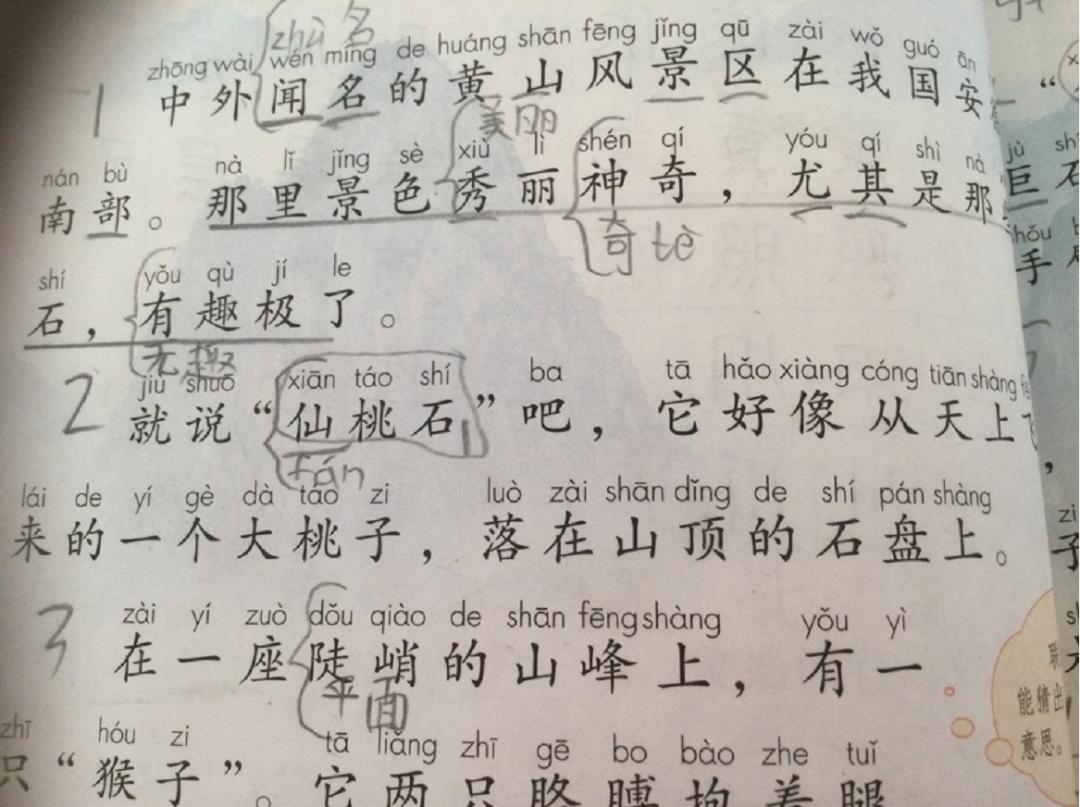 zhù 名
zhōng wài wén míng de huáng shān fēng jǐng qū zài wǒ guó ān
1 中外闻名的黄山风景区在我国安
美丽
nán bù nà lǐ jǐng sè xiù lì shén qí yóu qí shì nà
南部。那里景色秀丽神奇，尤其是那
奇 tè
shí yǒu qù jí le
石，有趣极了。
无趣
jiù shuō xiān táo shí ba tā hǎo xiàng cóng tiān shàng
2 就说“仙桃石”吧，它好像从天上飞
fán
lái de yí gè dà táo zi luò zài shān dǐng de shí pán shàng
来的一个大桃子，落在山顶的石盘上。
zài yí zuò dǒu qiào de shān fēng shàng yǒu yì
3 在一座陡峭的山峰上，有一
平面
zhī hóu zi tā liǎng zhī gē bo bào zhe tuǐ
只“猴子”。它两只胳膊抱着腿
jù
巨石
手
zi
子
联
能猜出
意思。